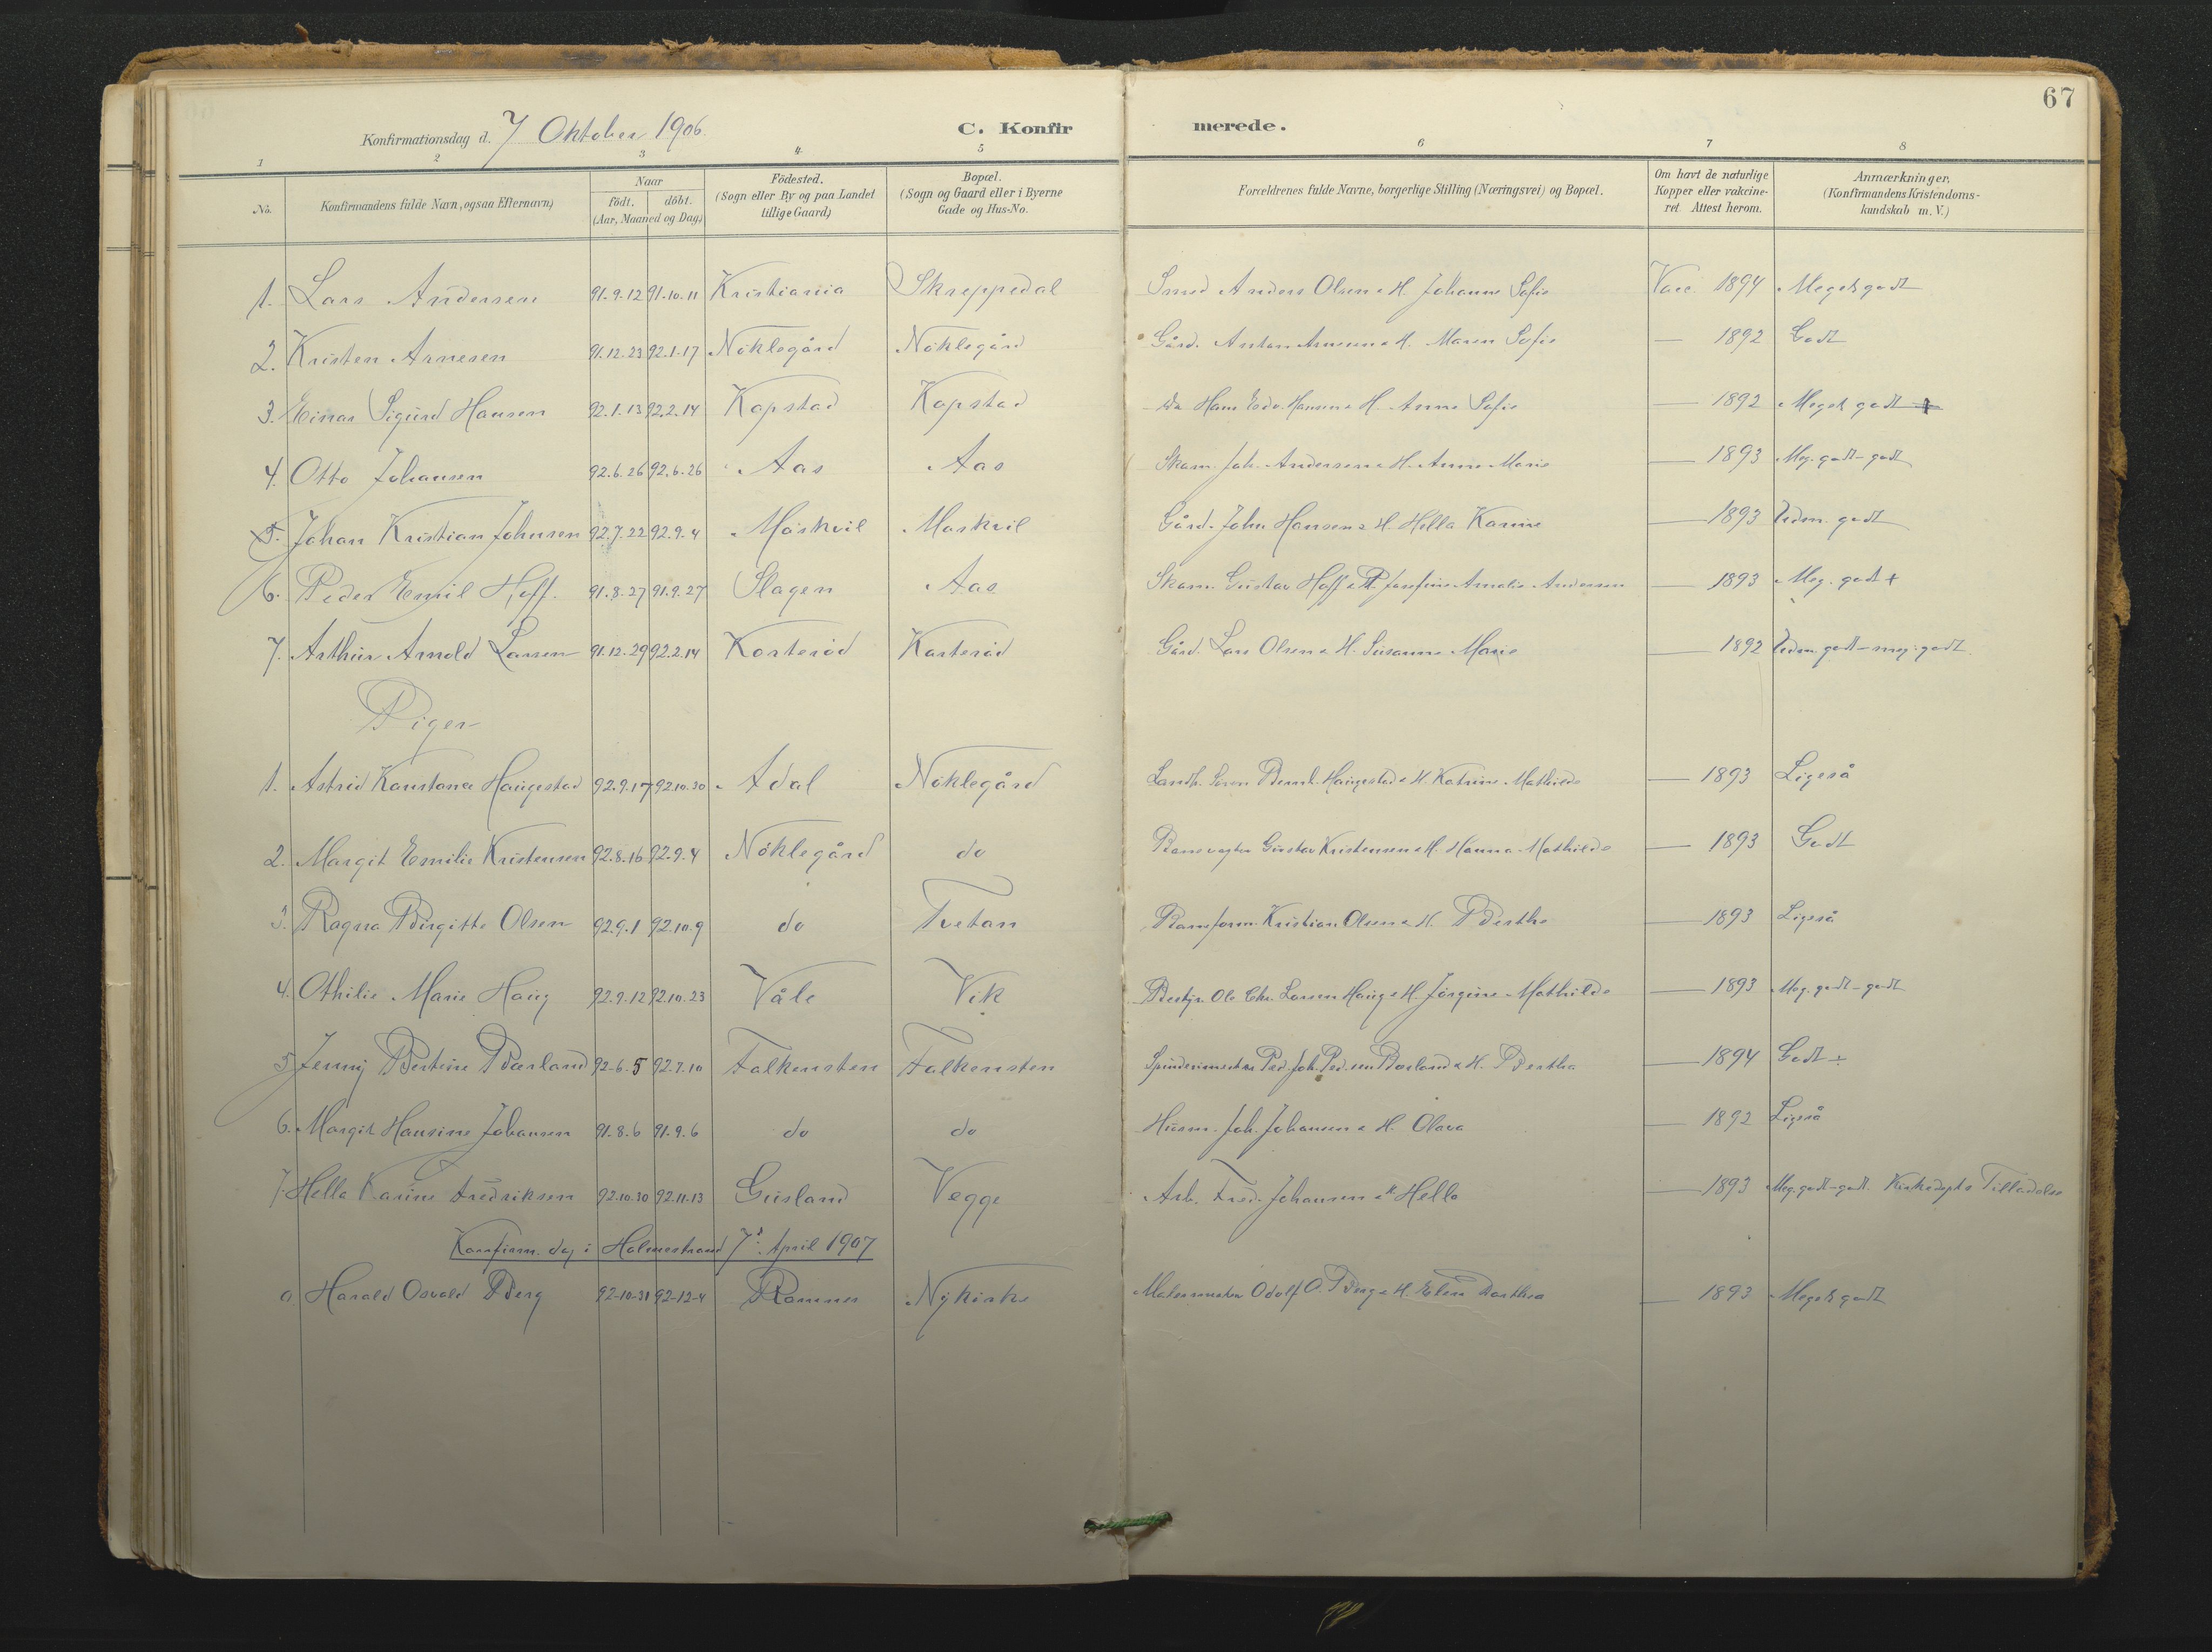 67
Konfirmationsdag d. 7 Oktober 1906.
C. Konfirmerede.
1 2 3 4 5 6 7 8
No. Konfirmandens fulde Navn, ogsaa Efternavn) Naar födt. döbt. (Aar, Maaned og Dag) Födested. (Sogn eller By og paa Landet tillige Gaard) Bopæl. (Sogn og Gaard eller i Byerne Gade og Hus-No. Forældrenes fulde Navne, borgerlige Stilling (Næringsvei) og Bopæl. Om havt de naturlige Kopper eller vakcineret. Attest herom. Anmærkninger, (Konfirmandens Kristendomskundskab m. V.)
1. Lars Andersen 91.9.12 91.10.11 Kristiania Skreppedal Smed Anders Olsen & H. Johanne Sofie Vacc. 1894 Meget godt
2. Kristen Arnesen 91.12.23 92.1.17 Nöklegård Nöklegård Gård. Anton Arnesen & H. Maren Sofie — 1892 Godt
3. Einar Sigurd Hansen 92.1.13 92.2.14 Kopstad Kopstad do Hans Edv. Hansen & H. Anne Sofie — 1892 Meget godt
4. Otto Johansen 92.6.26 92.6.26 Aas Aas Skom. Joh. Andersen & H. Anne Marie — 1893 Meg. godt - godt
5. Johan Kristian Johnsen 92.7.22 92.9.4 Moskvil Moskvil Gård. John Hansen & H. Hella Karine — 1893 Udm. godt
6. Peder Emil Hoff. 91.8.27 91.9.27 Slagen Aas Skom. Gustav Hoff & P. Josefine Amalie Andersen — 1893 Meg. godt +
7. Arthur Arnold Larsen 91.12.29 92.2.14 Korterød Korterød Gård. Lars Olsen & H. Susanne Marie — 1892 Udm. godt - meg. godt.
Piger
1. Astrid Konstance Haugestad 92.9.17 92.10.30 Adal Nöklegård Landh. Søren Bernh. Haugestad & H. Katrine Mathilde — 1893 Ligeså
2. Margit Emilie Kristensen 92.8.16 92.9.4 Nöklegård do Banevogter Gustav Kristensen & H. Hanna Mathilde — 1893 Godt
3. Ragna Birgitte Olsen 92.9.1 92.10.9 do Tvetan Baneform. Kristian Olsen & H. Berthe — 1893 Ligeså
4. Othilie Marie Haug 92.9.12 92.10.23 Våle Vik Bestyr. Ole Chr. Larsen Haug & H. Jörgine Mathilde — 1893 Meg. godt - godt
5 Jenny Bertine Barland 92-6-5 92.7.10 Falkensten Falkensten Spinderimester Joh. Barland & H. Bertha — 1894 Godt ÷
6. Margit Hansine Johansen 91.8.6 91.9.6 do do Husm. Joh. Johansen & H. Olava — 1892 Ligeså
7. Hella Karine Fredriksen 92.10.30 92.11.13 Gusland Vegge Arb. Fred. Johansen & H. Hella — 1893 Meg. godt - godt. Kirkedepts Tilladelse
Konfirm. dag i Holmestrand 7d. April 1907
Harald Osvald Berg 92-10-31 92-12-4 Ramnes Nykirke Malermester Odolf O. Berg & H. Elen Dorthea — 1893 Meget godt